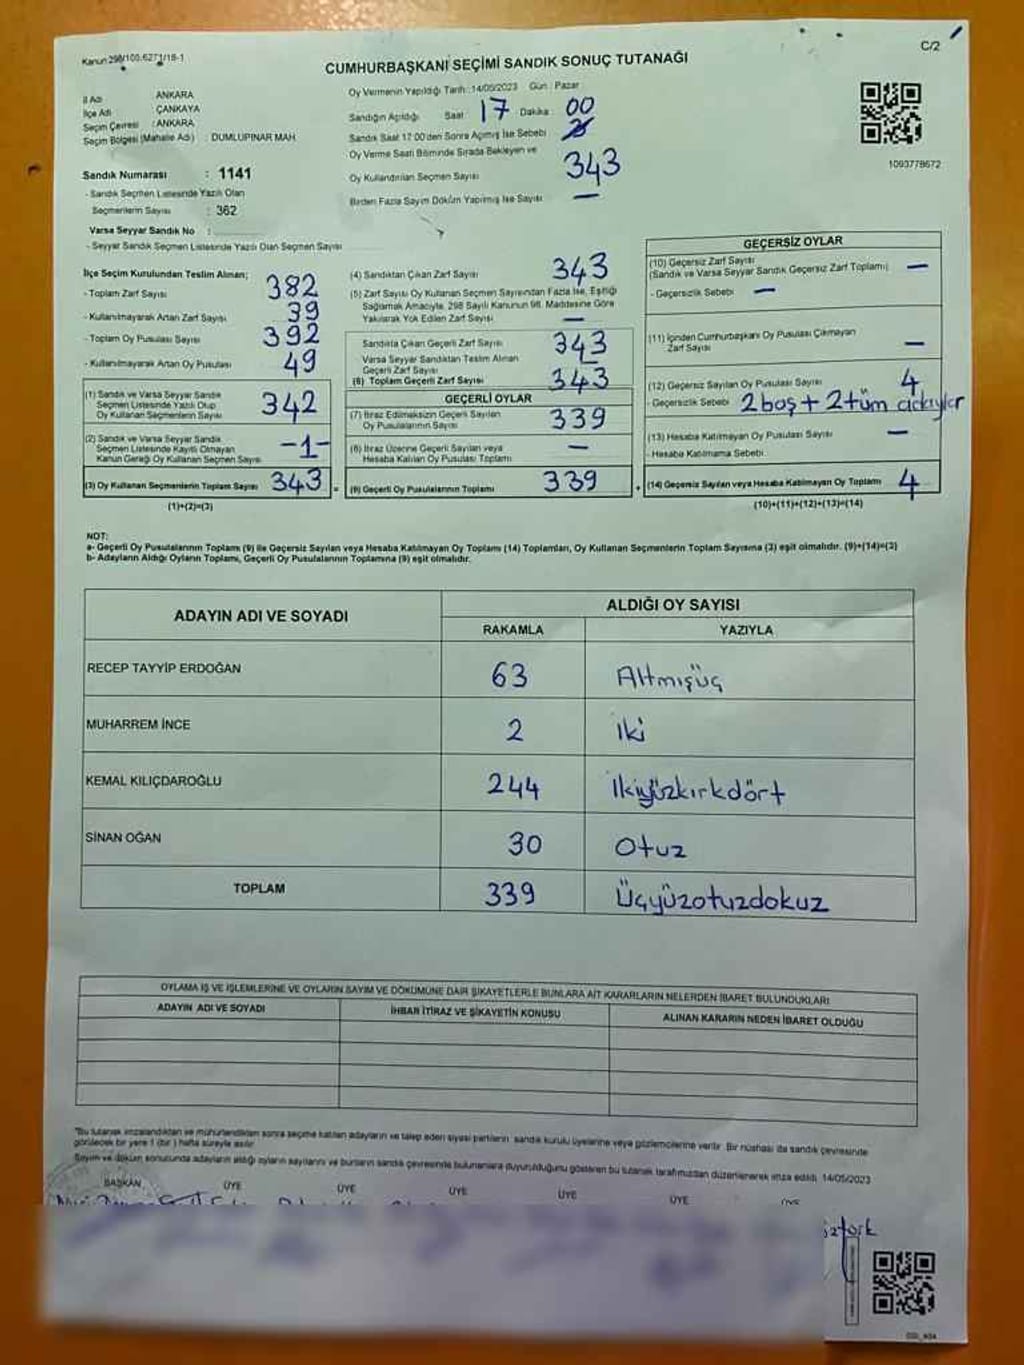 Kanun 298/100,6271/18-1
C/2
CUMHURBAŞKANI SEÇİMİ SANDIK SONUÇ TUTANAĞI
İl Adı : ANKARA
İlçe Adı : ÇANKAYA
Seçim Çevresi : ANKARA
Seçim Bölgesi (Mahalle Adı) : DUMLUPINAR MAH.
Sandık Numarası : 1141
- Sandık Seçmen Listesinde Yazılı Olan
Seçmenlerin Sayısı : 362
Varsa Seyyar Sandık No :
- Seyyar Sandık Seçmen Listesinde Yazılı Olan Seçmen Sayısı
Oy Vermenin Yapıldığı Tarih :14/05/2023 Gün : Pazar
Sandığın Açıldığı Saat 17 Dakika : 00
Sandık Saat 17:00'den Sonra Açılmış İse Sebebi
Oy Verme Saati Bitiminde Sırada Bekleyen ve
Oy Kullandırılan Seçmen Sayısı 343
Birden Fazla Sayım Döküm Yapılmış İse Sayısı —
1093778672
İlçe Seçim Kurulundan Teslim Alınan;
- Toplam Zarf Sayısı 382
- Kullanılmayarak Artan Zarf Sayısı 39
- Toplam Oy Pusulası Sayısı 392
- Kullanılmayarak Artan Oy Pusulası 49
(1) Sandık ve Varsa Seyyar Sandık
Seçmen Listesinde Yazılı Olup
Oy Kullanan Seçmenlerin Sayısı 342
(2) Sandık ve Varsa Seyyar Sandık
Seçmen Listesinde Kayıtlı Olmayan
Kanun Gereği Oy Kullanan Seçmen Sayısı -1-
(3) Oy Kullanan Seçmenlerin Toplam Sayısı 343 =
(1)+(2)=(3)
(4) Sandıktan Çıkan Zarf Sayısı 343
(5) Zarf Sayısı Oy Kullanan Seçmen Sayısından Fazla İse, Eşitliği
Sağlamak Amacıyla, 298 Sayılı Kanunun 98. Maddesine Göre
Yakılarak Yok Edilen Zarf Sayısı —
Sandıkta Çıkan Geçerli Zarf Sayısı 343
Varsa Seyyar Sandıktan Teslim Alınan
Geçerli Zarf Sayısı
(6) Toplam Geçerli Zarf Sayısı 343
GEÇERLİ OYLAR
(7) İtiraz Edilmeksizin Geçerli Sayılan
Oy Pusulalarının Sayısı 339
(8) İtiraz Üzerine Geçerli Sayılan veya
Hesaba Katılan Oy Pusulası Toplamı —
(9) Geçerli Oy Pusulalarının Toplamı 339 +
GEÇERSİZ OYLAR
(10) Geçersiz Zarf Sayısı
(Sandık ve Varsa Seyyar Sandık Geçersiz Zarf Toplamı) —
- Geçersizlik Sebebi —
(11) İçinden Cumhurbaşkanı Oy Pusulası Çıkmayan
Zarf Sayısı —
(12) Geçersiz Sayılan Oy Pusulası Sayısı 4
- Geçersizlik Sebebi 2 boş + 2 tüm
(13) Hesaba Katılmayan Oy Pusulası Sayısı —
- Hesaba Katılmama Sebebi
(14) Geçersiz Sayılan veya Hesaba Katılmayan Oy Toplamı 4
(10)+(11)+(12)+(13)=(14)
NOT:
a- Geçerli Oy Pusulalarının Toplamı (9) ile Geçersiz Sayılan veya Hesaba Katılmayan Oy Toplamı (14) Toplamları, Oy Kullanan Seçmenlerin Toplam Sayısına (3) eşit olmalıdır. (9)+(14)=(3)
b- Adayların Aldığı Oyların Toplamı, Geçerli Oy Pusulalarının Toplamına (9) eşit olmalıdır.
ADAYIN ADI VE SOYADI
ALDIĞI OY SAYISI
RAKAMLA YAZIYLA
RECEP TAYYİP ERDOĞAN 63 Altmışüç
MUHARREM İNCE 2 İki
KEMAL KILIÇDAROĞLU 244 İkiyüzkırkdört
SİNAN OĞAN 30 Otuz
TOPLAM 339 Üçyüzotuzdokuz
OYLAMA İŞ VE İŞLEMLERİNE VE OYLARIN SAYIM VE DÖKÜMÜNE DAİR ŞİKAYETLERLE BUNLARA AİT KARARLARIN NELERDEN İBARET BULUNDUKLARI
ADAYIN ADI VE SOYADI İHBAR İTİRAZ VE ŞİKAYETİN KONUSU ALINAN KARARIN NEDEN İBARET OLDUĞU
*Bu tutanak imzalandıktan ve mühürlendikten sonra seçime katılan adayların ve talep eden siyasi partilerin sandık kurulu üyelerine veya gözlemcilerine verilir. Bir nüshası da sandık çevresinde
görülecek bir yere 1 (bir ) hafta süreyle asılır.
Sayım ve döküm sonucunda adayların aldığı oyların sayılarını ve bunların sandık çevresinde bulunanlara duyurulduğunu gösteren bu tutanak tarafımızdan düzenlenerek imza edildi. 14/05/2023
BAŞKAN ÜYE ÜYE ÜYE ÜYE ÜYE ÜYE